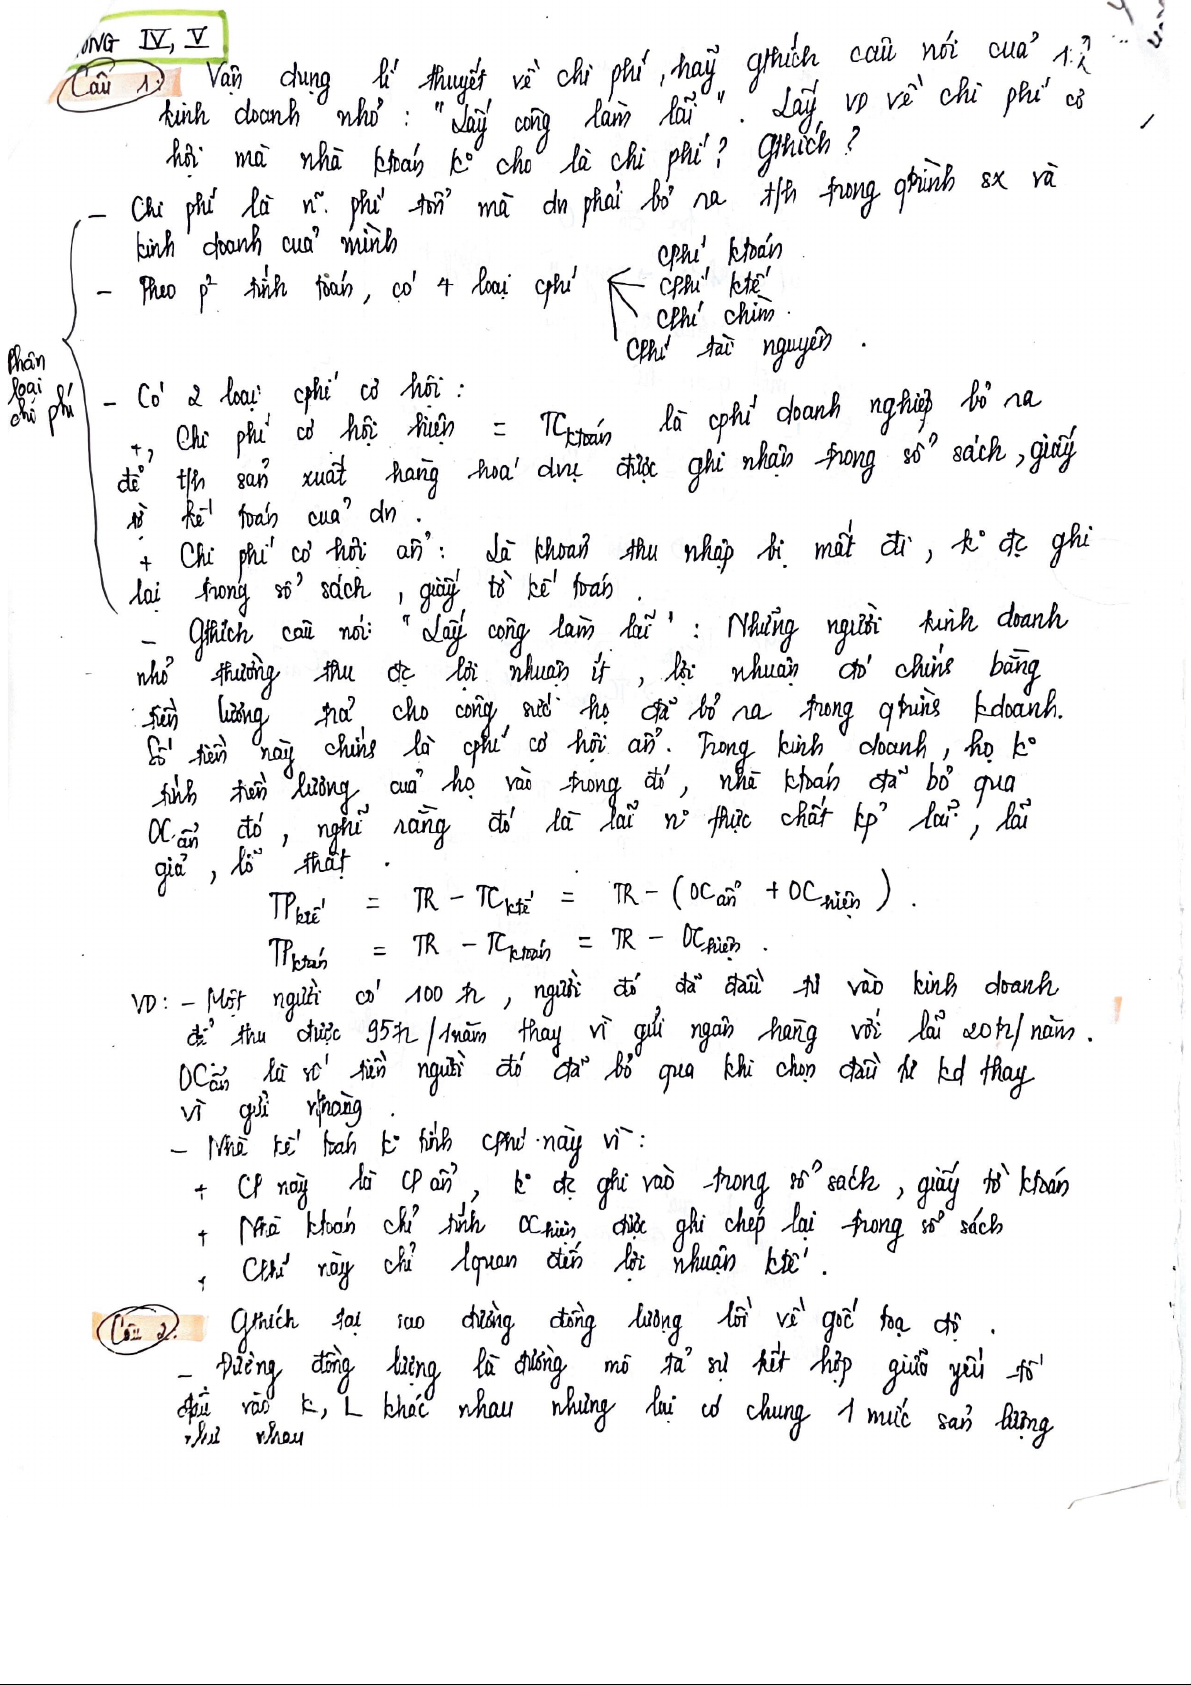 ƯƠNG IV, V
Câu 1: Vận dụng lí thuyết về chi phí, hãy gthích câu nói của
kinh doanh nhỏ: "Lấy công làm lãi". Lấy VD về chi phí cơ
hội mà nhà ktoán k° cho là chi phí? Gthích?
- Chi phí là n~ phí tổn mà dn phải bỏ ra t/h trong qtrình sx và
kinh doanh của mình
- Theo p² tính toán, có 4 loại cphí
Cphí ktoán
Cphí ktế
Cphí chìm.
Cphí tài nguyên.
Phân
loại
chi phí
- Có 2 loại cphí cơ hội:
+, Chi phí cơ hội hiện = TCktoán là cphí doanh nghiệp bỏ ra
để t/h sản xuất hàng hoá dvụ được ghi nhận trong sổ sách, giấy
tờ kế toán của dn.
+ Chi phí cơ hội ẩn: Là khoản thu nhập bị mất đi, k° đc ghi
lại trong sổ sách, giấy tờ kế toán.
- Gthích câu nói: "Lấy công làm lãi": Những người kinh doanh
nhỏ thường thu đc lợi nhuận ít, lợi nhuận đó chính bằng
tiền lương trả cho công sức họ đã bỏ ra trong qtrình kdoanh.
Số tiền này chính là cphí cơ hội ẩn. Trong kinh doanh, họ k°
tính tiền lương của họ vào trong đó, nhà ktoán đã bỏ qua
OCẩn đó, nghĩ rằng đó là lãi n° thực chất kp lãi, lãi
giả, lỗ thật.
TPktế = TR - TCktế = TR - (OCẩn + OChiện).
TPktoán = TR - TCktoán = TR - OChiện.
VD: - Một người có 100 tr, người đó đã đầu tư vào kinh doanh
để thu được 95tr/1năm thay vì gửi ngân hàng với lãi 20tr/năm.
OCẩn là số tiền người đó đã bỏ qua khi chọn đầu tư kd thay
vì gửi nhàng.
- Nhà kế toán k° tính cphí này vì:
+ CP này là CP ẩn, k° đc ghi vào trong sổ sách, giấy tờ ktoán
+ Nhà ktoán chỉ tính OChiện được ghi chép lại trong sổ sách
+ Cphí này chỉ lquan đến lợi nhuận ktế.
Câu 2: Gthích tại sao đường đồng lượng lồi về gốc toạ độ.
- Đường đồng lượng là đường mô tả sự kết hợp giữa yếu tố
đầu vào K, L khác nhau nhưng lại có chung 1 mức sản lượng
như nhau